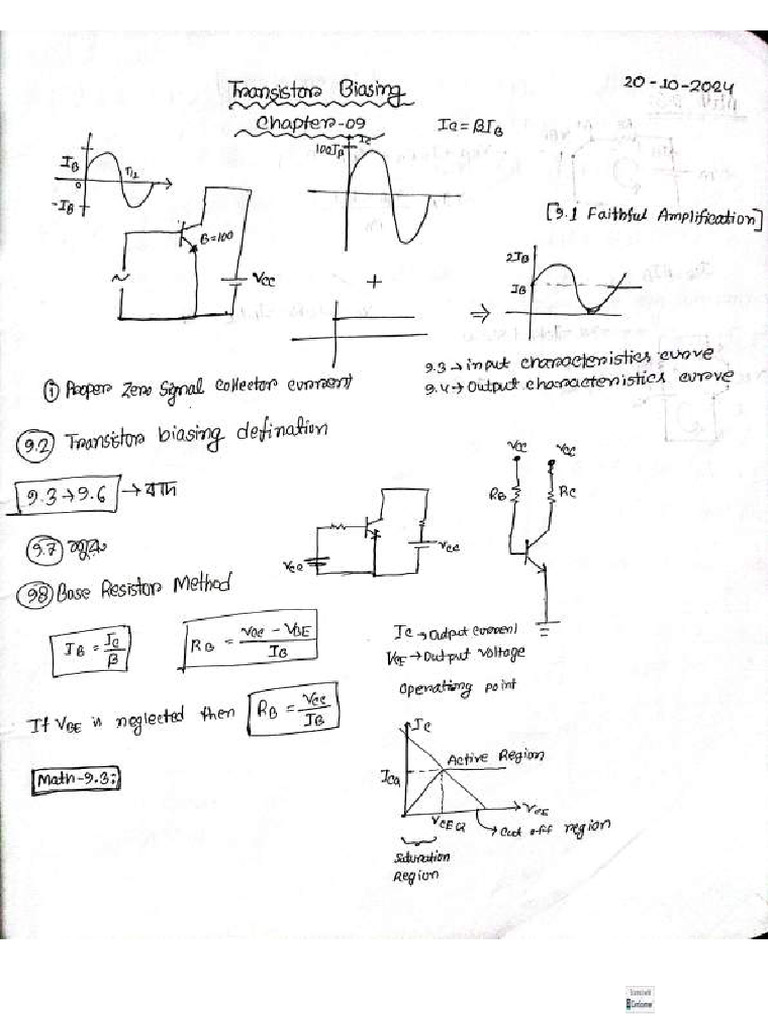 Transistor Biasing
20-10-2024
Chapter-09
Ic = βIB
IB
0
π/2
-IB
100Iβ
Ic
β=100
VCC
+
[9.1 Faithful Amplification]
2IB
IB
⇒
① Proper Zero Signal Collector current
9.3 → input characteristics curve
9.4 → Output characteristics curve
9.2 Transistor biasing defination
9.3→9.6 → বাদ
VCC
VCC
RB
RC
VCC
VCC
9.7
9.8 Base Resistor Method
IB = Ic/β
RB = VCC - VBE / IB
Ic → Output current
VCE → Output voltage
Operating point
If VBE is neglected then RB = VCC / IB
Math-9.3:
Ic
ICQ
Active Region
VCE
VCEQ
Cut off region
Saturation
Region